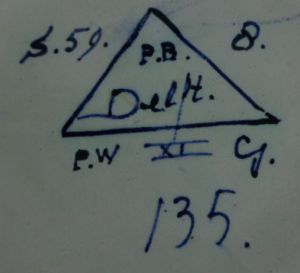 S. 59. 8.
P.B.
Delft.
P.W XI G.
135.